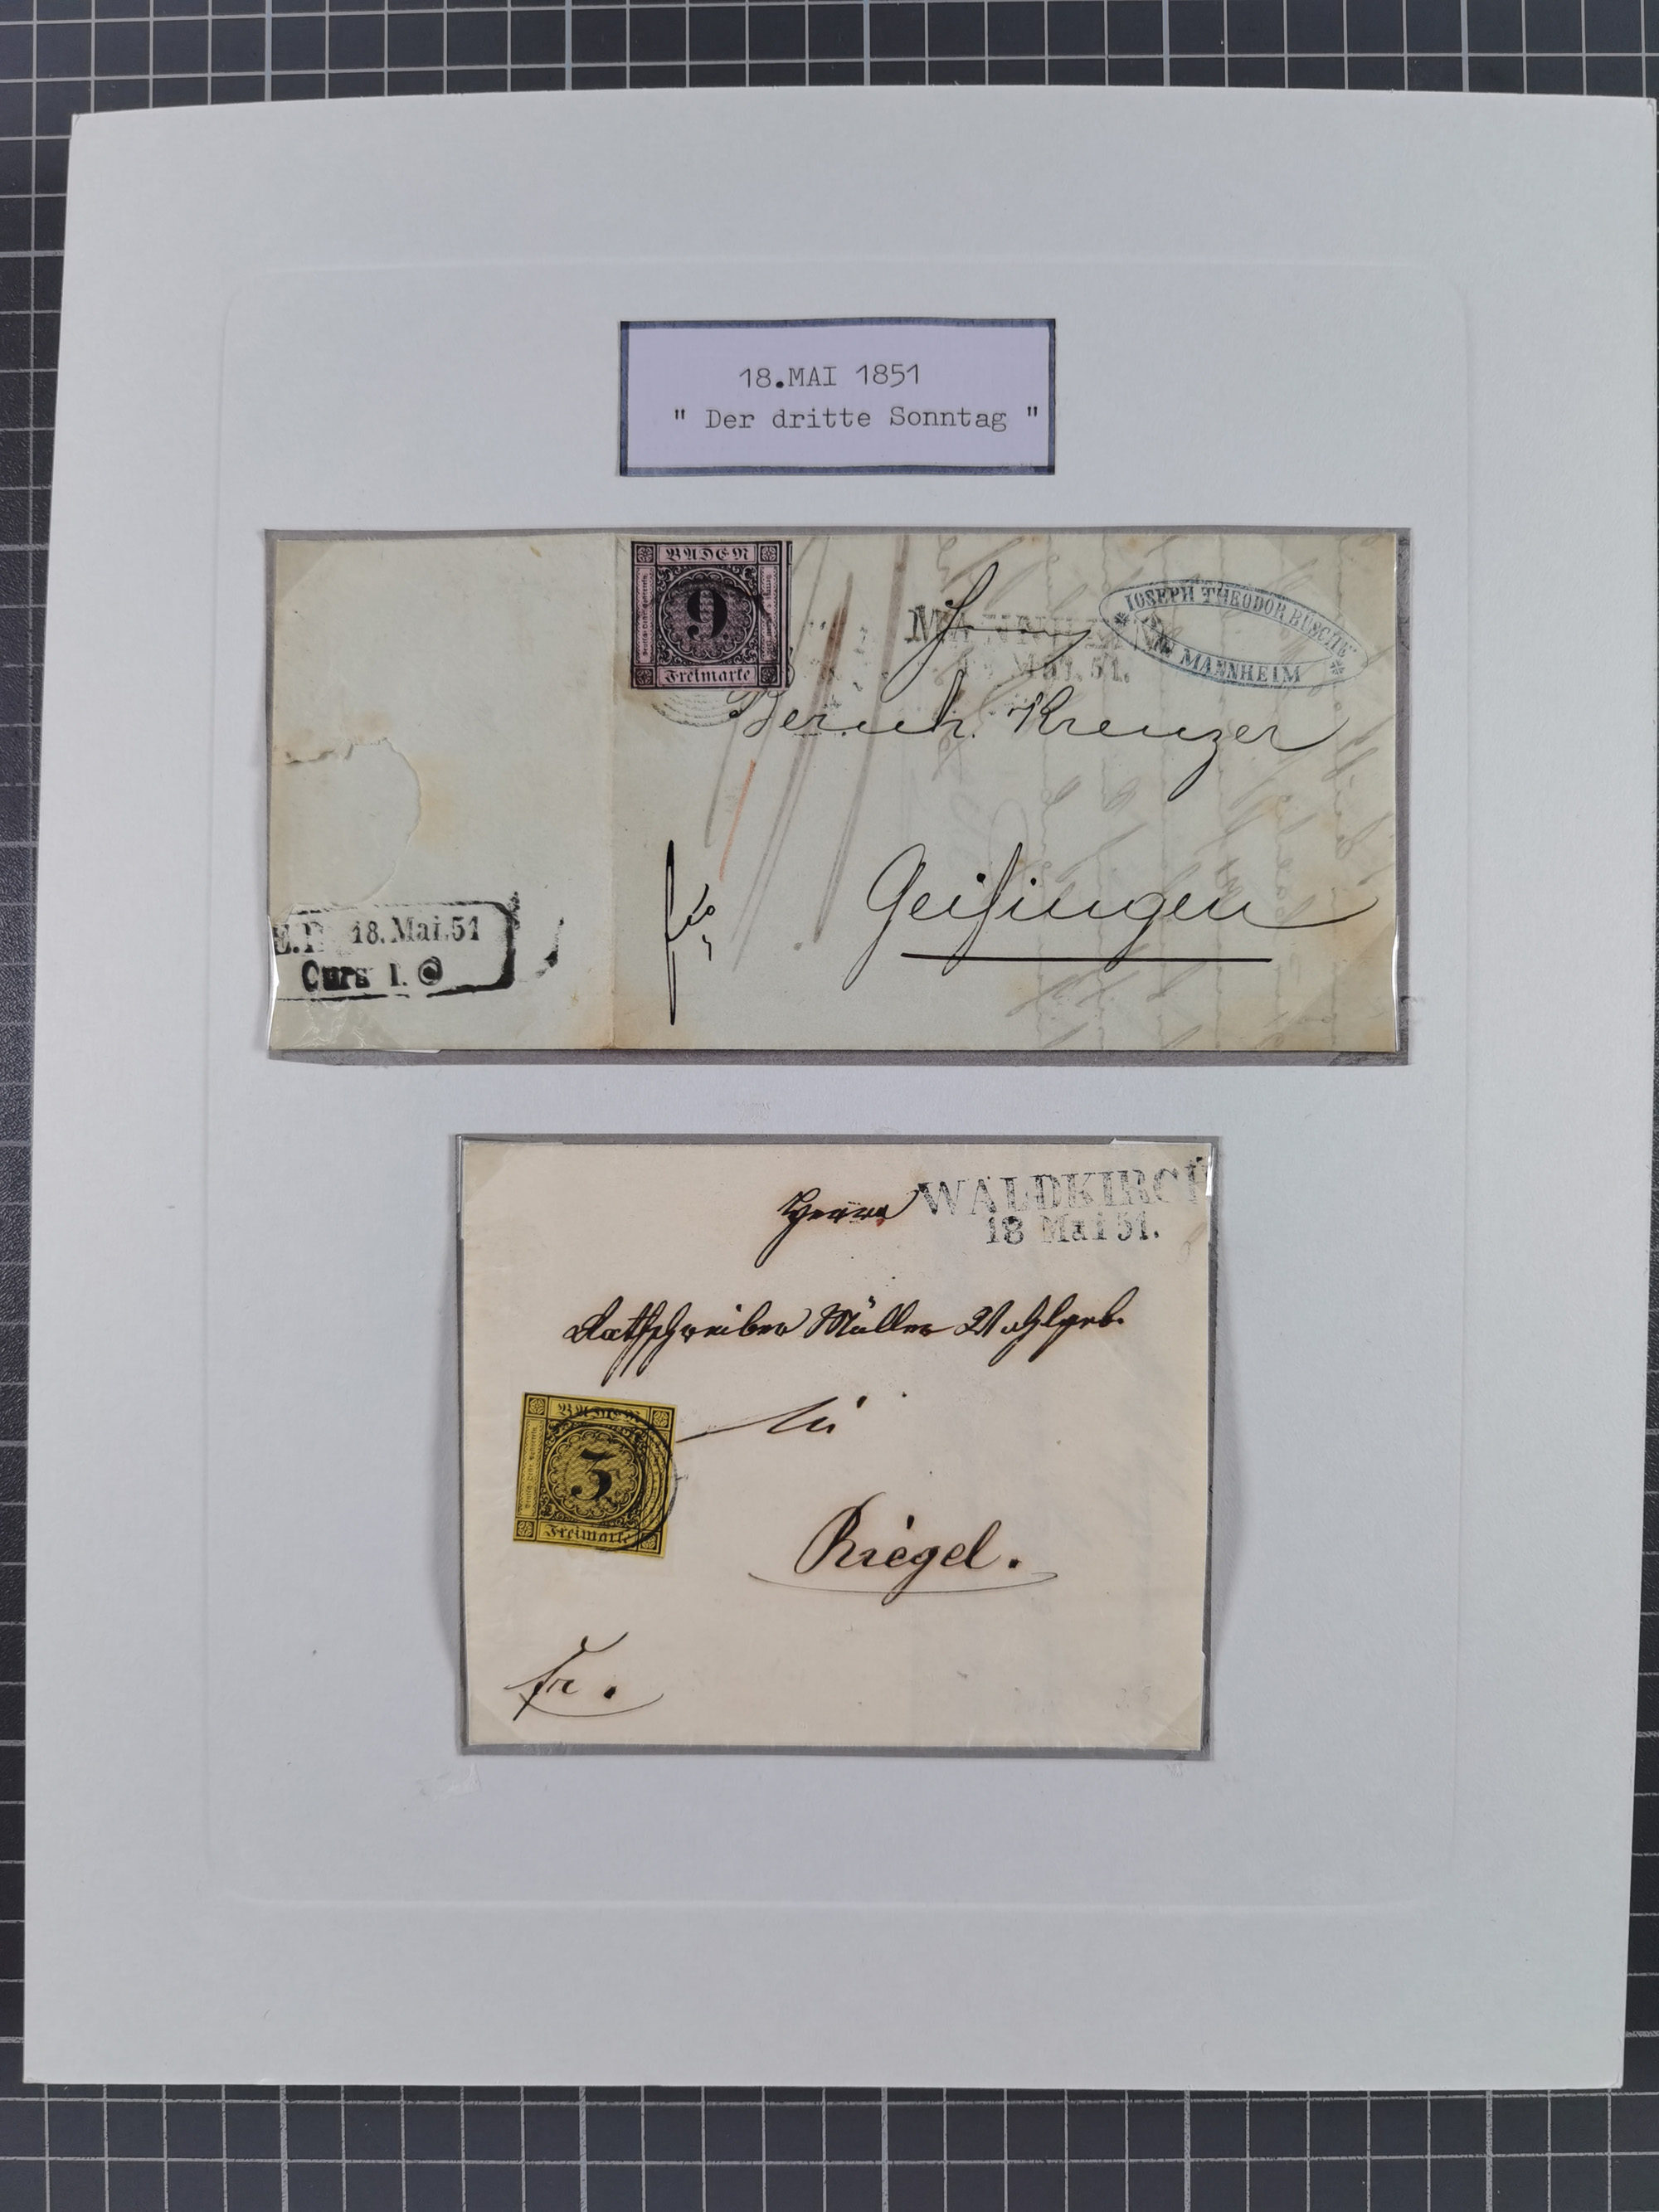 18.MAI 1851
" Der dritte Sonntag "
BADEN
9
Freimarke
MANNHEIM
Mai. 51.
JOSEPH THEODOR BUSCH
MANNHEIM
Hrn
Kreuzer
Geißingen
fro
18. Mai. 51
Curs I.
Herrn
WALDKIRCH
18 Mai 51.
Rathschreiber Müller Wohlgeb.
BADEN
3
Freimarke
in
Riegel.
fr.